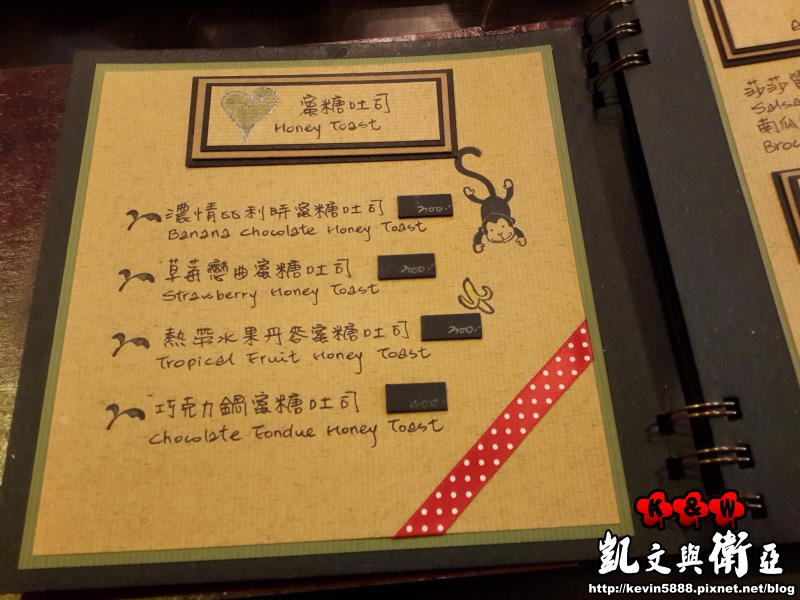 蜜糖吐司
Honey Toast
濃情比利時蜜糖吐司 300.
Banana Chocolate Honey Toast
草莓戀曲蜜糖吐司 300.
Strawberry Honey Toast
熱帶水果丹麥蜜糖吐司 300.
Tropical Fruit Honey Toast
巧克力鍋蜜糖吐司 400.
Chocolate Fondue Honey Toast
莎莎
Salsa
南瓜
Broc
K & W
凱文與衛亞
http://kevin5888.pixnet.net/blog